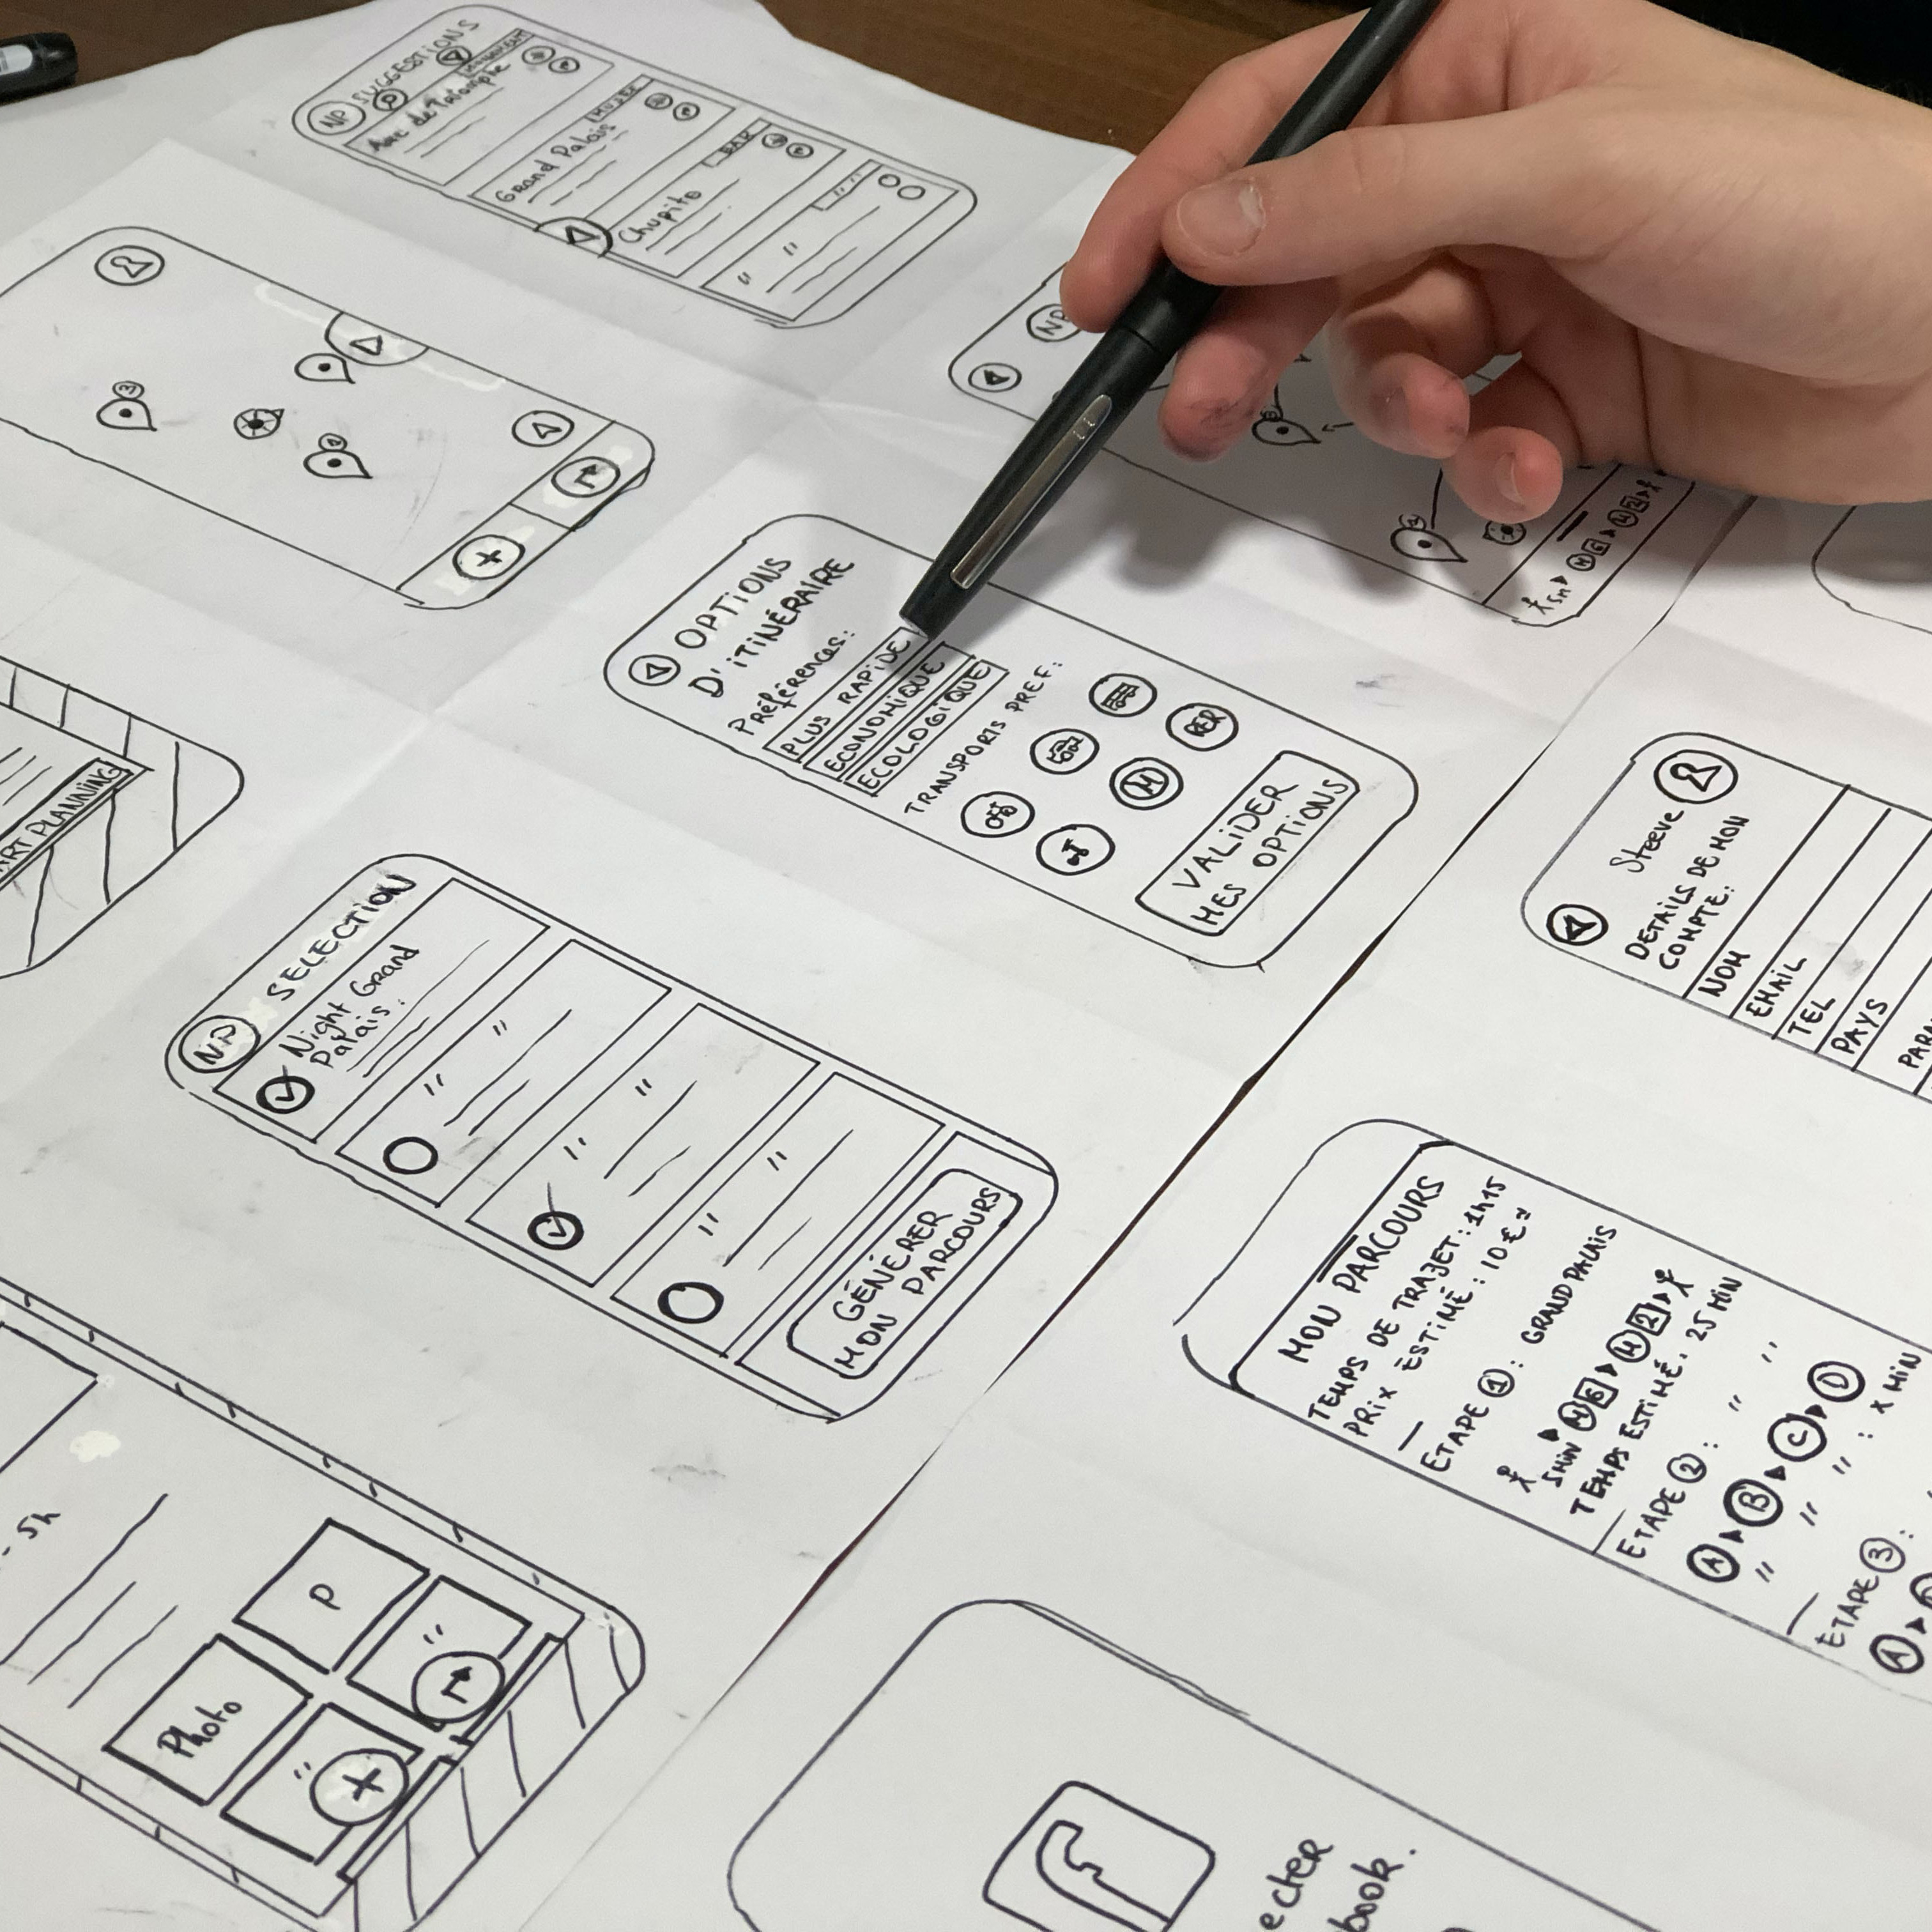 NP SUGGESTIONS
Arc de Triomphe
MONUMENT
Grand Palais
MUSÉE
Chupito
BAR
" "
NP
3
2
OPTIONS
D'ITINÉRAIRE
Préférences:
PLUS RAPIDE
ECONOMIQUE
ECOLOGIQUE
TRANSPORTS PREF:
RER
M
VALIDER
MES OPTIONS
ART PLANNING
NP SELECTION
Night Grand
Palais:
" "
" "
" "
GÉNÉRER
MON PARCOURS
Steeve
DETAILS DE MON
COMPTE:
NOM
EMAIL
TEL
PAYS
PAR
MON PARCOURS
TEMPS DE TRAJET: 1h15
PRIX ESTIMÉ: 10€
ETAPE 1: GRAND PALAIS
5MIN M 6 M 2
TEMPS ESTIMÉ. 25 MIN
ETAPE 2: " "
A B C D
" " " : X MIN
ETAPE 3:
A
5M M 6 M 2
- 5h
P
"
Photo
"
f
ecter
book.